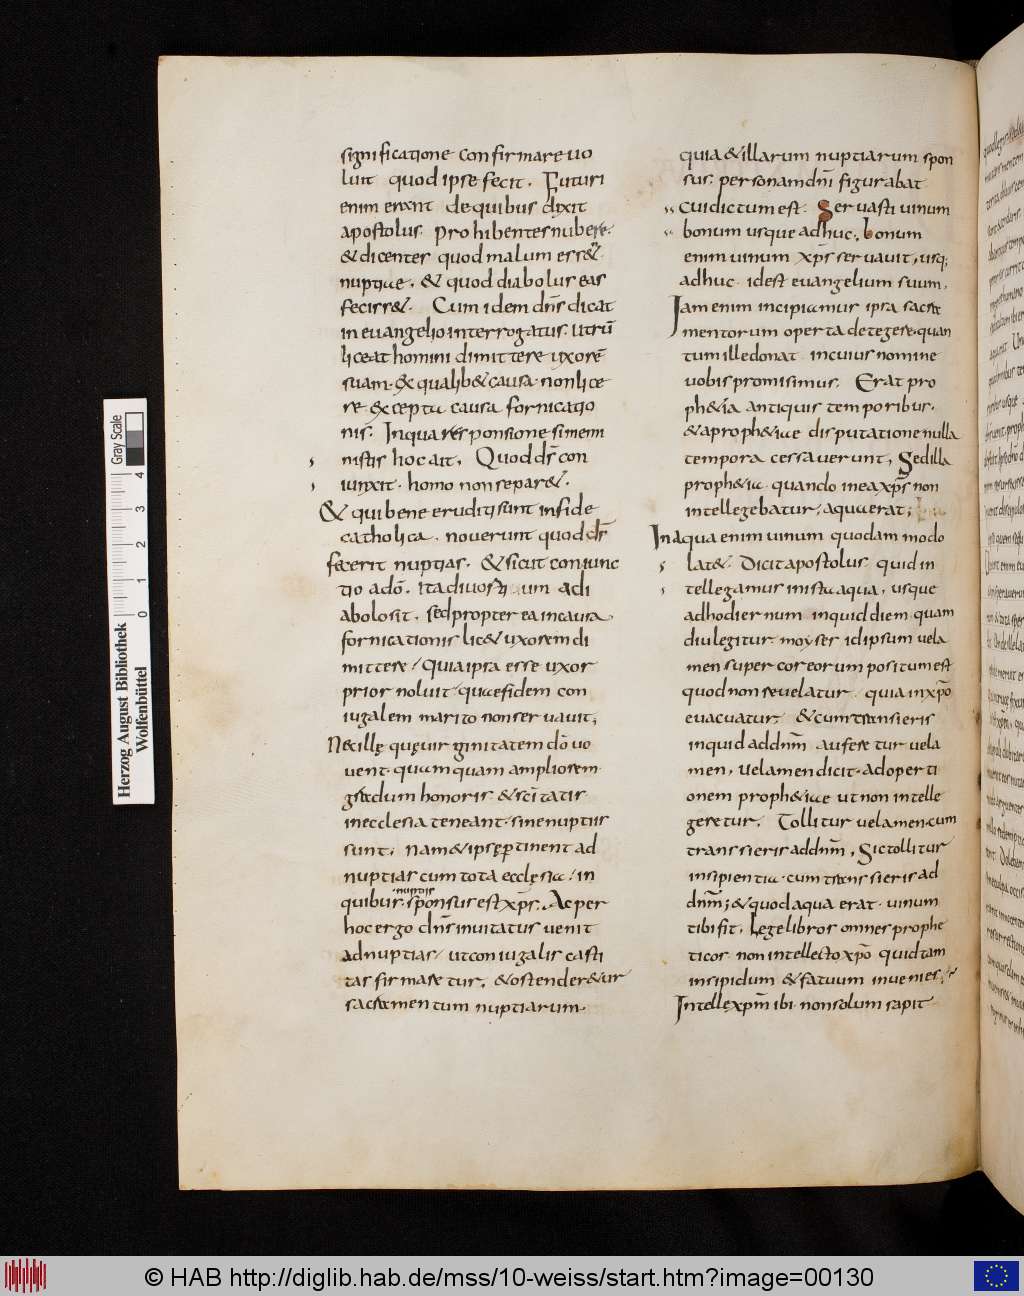 significatione confirmare uo
luit quod ipse fecit. Futuri
enim erant de quibus dixit
apostolus. prohibentes nubere.
& dicentes quod malum ess&
nuptiae. & quod diabolus eas
feciss&. Cum idem dn̄s dicat
in euangelio interrogatus. utrū
liceat homini dimittere uxorē
suam. ex qualib& causa. non lice
re. excepta causa fornicatio
nis. In qua responsione si memi
nistis hoc ait. Quod ds̄ con
iunxit. homo non separ&.
& qui bene eruditi sunt in fide
catholica. nouerunt quod ds̄
fecerit nuptias. & sicut coniunc
tio a dō. ita diuorti um a di
abolo sit. sed propterea in causa
fornicationis lic& uxorem di
mittere. Quia ipsa esse uxor
prior noluit. quae fidem con
iugalem marito non seruauit,
Nec illę quę uirginitatem dō uo
uent. quamquam ampliorem
gradum honoris & scītatis
in ecclesia teneant. sine nuptiis
sunt. Nam & ipsę pertinent ad
nuptias cum tota ecclęsia. in
nuptiis
quibus sponsus est xp̄s. Ac per
hoc ergo dn̄s inuitatus uenit
ad nuptias. ut coniugalis casti
tas firmare tur, & ostender&ur
sacramentum nuptiarum.
quia & illarum nuptiarum spon
sus. personam dn̄i figurabat
cui dictum est. Seruasti uinum
bonum usque adhuc, bonum
enim uinum xp̄s seruauit, usq;
adhuc. id est euangelium suum.
Iam enim incipiamus ipsa sacra
mentorum operta detegere. quan
tum ille donat. in cuius nomine
uobis promisimus. Erat pro
ph&ia antiquis temporibus.
& a proph&iae disputatione nulla
tempora cessauerunt, Sed illa
proph&ia. quando in ea xp̄s non
intellegebatur, aqua erat;
In aqua enim uinum quodam modo
lat&. Dicit apostolus quid in
tellegamus in ista aqua, usque
adhodiernum inquid diem quam
diu legitur moyses id ipsum uela
men super cor eorum positum est
quod non reuelatur. quia in xp̄o
euacuatur, & cum transieris
inquid ad dnm̄. aufere tur uela
men, uelamen dicit. adoperti
onem proph&iae ut non intelle
geretur, Tollitur uelamen. cum
transsieris ad dnm̄, Sic tollitur
insipientia. cum transsieris ad
dnm̄; & quod aqua erat. uinum
tibi fit, Lege libros omnes prophe
ticos. non intellecto xp̄o quid tam
insipidum & fatuum inuenies,
Intelle xpm̄ ibi. non solum sapit
Gray Scale
4 3 2 1 0
Herzog August Bibliothek
Wolfenbüttel
© HAB http://diglib.hab.de/mss/10-weiss/start.htm?image=00130